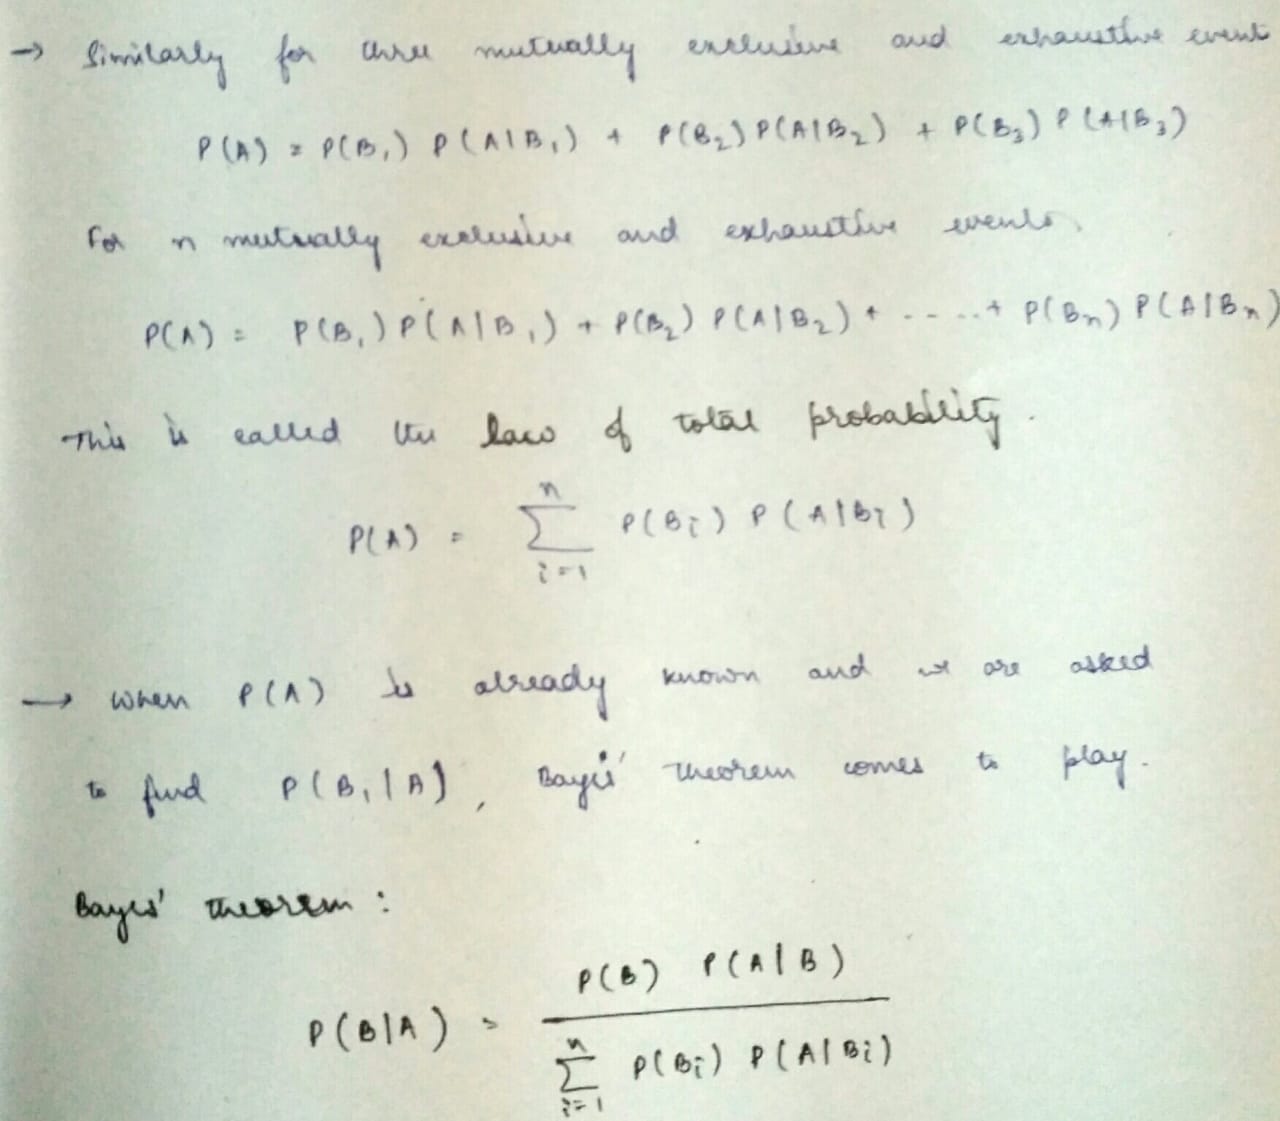 → Similarly for three mutually exclusive and exhaustive event
P(A) = P(B₁) P(A|B₁) + P(B₂) P(A|B₂) + P(B₃) P(A|B₃)
For n mutually exclusive and exhaustive events.
P(A) = P(B₁) P(A|B₁) + P(B₂) P(A|B₂) + ..... + P(Bₙ) P(A|Bₙ)
This is called the law of total probability.
n
P(A) = ∑ P(Bi) P(A|Bi)
i=1
→ When P(A) is already known and we are asked
to find P(B₁|A), Bayes' theorem comes to play.
Bayes' theorem :
P(B) P(A|B)
P(B|A) =
n
∑ P(Bi) P(A|Bi)
i=1